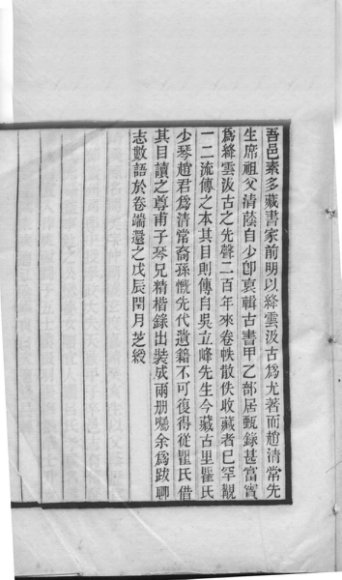 吾邑素多藏書家前明以絳雲汲古爲尤著而趙清常先
生席祖父淸蔭自少卽裒輯古書甲乙部居甄錄甚富實
爲絳雲汲古之先聲二百年來卷帙散佚收藏者已罕覯
一二流傳之本其目則傳自吳立峰先生今藏古里瞿氏
少琴趙君爲清常裔孫慨先代遺籍不可復得從瞿氏借
其目讀之尊甫子琴兄精楷錄出裝成兩册囑余爲跋聊
志數語於卷端還之戊辰閏月芝綬